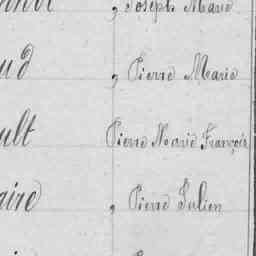 , Joseph Marie
ud , Pierre Marie
ult Pierre Marie François
aire , Pierre Julien